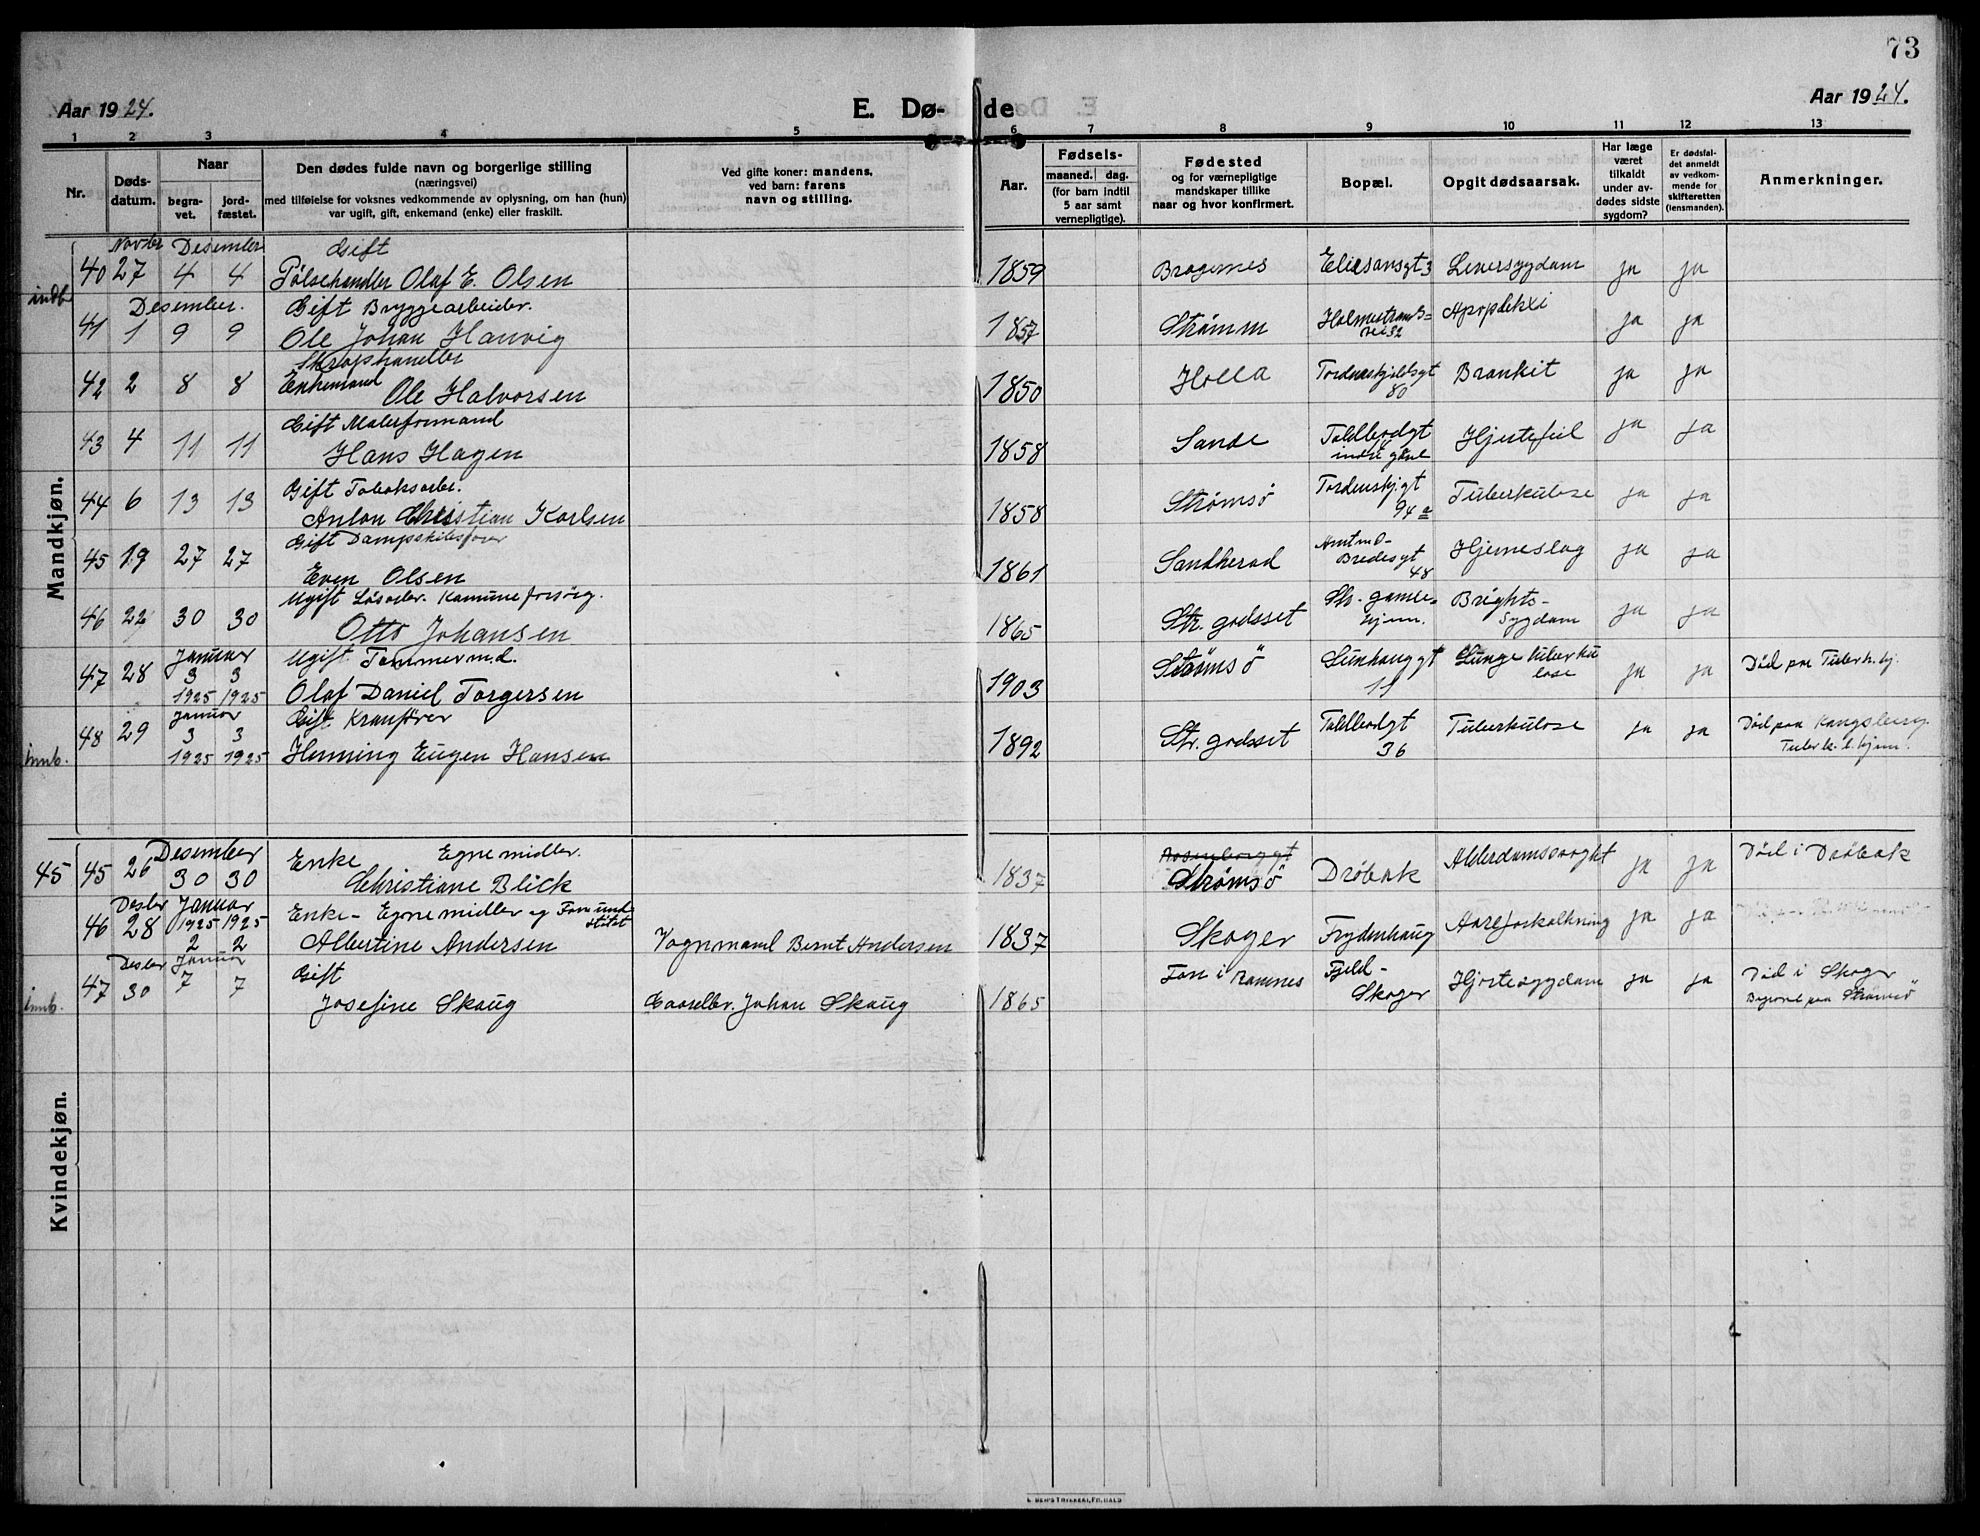 73
Aar 1924.
E. Dø-
de
Aar 1924.
1 2 3 4 5 6 7 8 9 10 11 12 13
Nr.
Døds-
datum.
Naar
begra-
vet.
jord-
fæstet.
Den dødes fulde navn og borgerlige stilling
(næringsvei)
med tilføielse for voksnes vedkommende av oplysning, om han (hun)
var ugift, gift, enkemand (enke) eller fraskilt.
Ved gifte koner: mandens,
ved barn: farens
navn og stilling.
Aar.
Fødsels-
maaned. dag.
(for barn indtil
5 aar samt
vernepligtige).
Fødested
og for værnepligtige
mandskaper tillike
naar og hvor konfirmert.
Bopæl.
Opgit dødsaarsak.
Har læge
været
tilkaldt
under av-
dødes sidste
sygdom?
Er dødsfal-
det anmeldt
av vedkom-
mende for
skifteretten
(lensmanden).
Anmerkninger.
Mandkjøn.
Novbr Desember Gift
40 27 4 4 Pølsehandler Olaf E. Olsen 1859 Bragernes Leversygdom ja ja
Desember. Gift Bryggearbeider.
41 1 9 9 Ole Johan Hanvig 1857 Strømm ja ja
Enkemand
42 2 8 8 Ole Halvorsen 1850 Holla Tordenskjoldsgt 80 Bronkit ja ja
Gift Malerformand
43 4 11 11 Hans Hagen 1858 Sande Toldbodgt Hjertefeil ja ja
Gift Tobaksarbr.
44 6 13 13 Anton Christian Karlsen 1858 Strømsö Tordenskj.gt 94 a Tuberkulose ja ja
Gift Dampskibsfører
45 19 27 27 Even Olsen 1861 Sandherad Amtmd- Bredesgt 48 Hjerneslag ja ja
Ugift Løsarbr. Kamune forsörg.
46 22 30 30 Otto Johansen 1865 Str. godsset Str. gamle- hjem. Brights- Sygdom ja ja
Januar Ugift Tømmermd.
47 28 3 3 1925 1925 Olaf Daniel Torgersen 1903 Strömsö 11 Lunge tuberku lose ja ja Död paa Tuberk. hj.
Januar Gift Kranfører
48 29 3 3 1925 1925 Henning Eugen Hansen 1892 Str. godsset Toldbodgt 36 Tuberkulose ja ja Död paa Kongsberg
Tuberk. hjem.
innb.
Kvindekjøn.
Desember Enke Egne midler.
45 45 26 30 30 Christiane Blick 1837 Rosenborggt Strømsö Dröbak ja ja Död i Dröbak
Desbr Januar Enke - Egne midler og
46 28 1925 1925 2 2 Albertine Andersen Vognmand Bernt Andersen 1837 Skoger Frydenhaug Aareforkalkning ja ja
Desbr Januar Gift
47 30 7 7 Josefine Skaug Johan Skaug 1865 Fon i Ramnes Fjeld- Skoger Hjertesygdom ja ja Död i Skoger
Begravet paa Strömsö
innb.